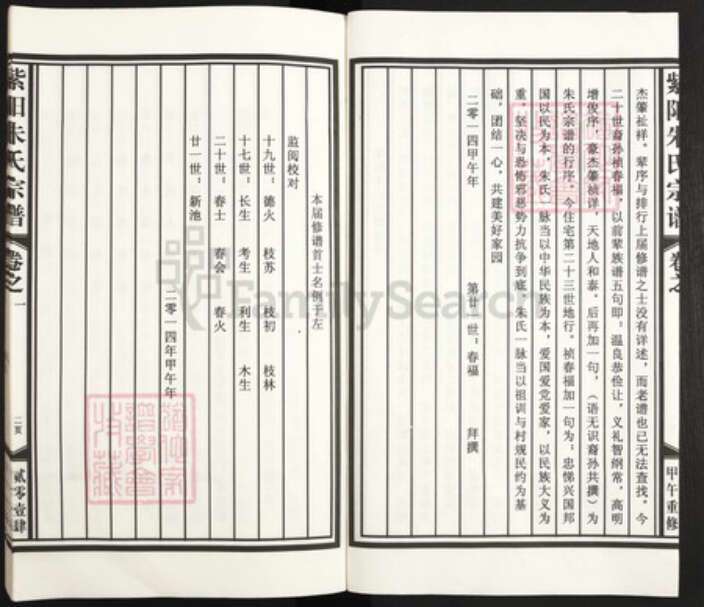 紫阳朱氏宗谱
卷之一
甲午重修
杰肇祉祥。辈序与排行上届修谱之士没有详述，而老谱也已无法查找。今
二十世裔孙祯春福，以前辈族谱五句即：温良恭俭让，义礼智纲常，高明
增俊序，豪杰肇祯祥，天地人和泰。后再加一句，（语无识裔孙共撰）为
朱氏宗谱的行序。今住宅第二十三世地行。祯春福加一句为：忠悌兴国邦
国以民为本，朱氏一脉当以中华民族为本，爱国爱党爱家，以民族大义为
重，坚决与恐怖邪恶势力抗争到底。朱氏一脉当以祖训与村规民约为基
础，团结一心，共建美好家园
二零一四甲午年 第廿一世：春福 拜撰
本届修谱首士名例于左
监阅校对
十九世：德火 枝苏 枝初 枝林
十七世：长生 考生 利生 木生
二十世：春士 春会 春火
廿一世：新池
二零一四年甲午年
紫阳朱氏宗谱
卷之一
二页
贰零壹肆
FamilySearch